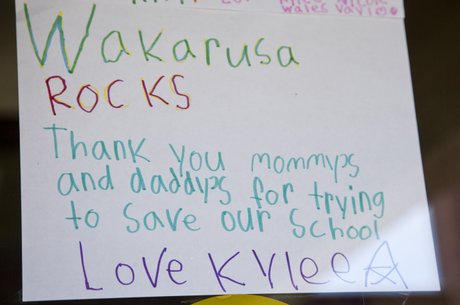 Wakarusa
ROCKS
Thank you mommys
and daddys for trying
to save our school
LOVE KYLEE